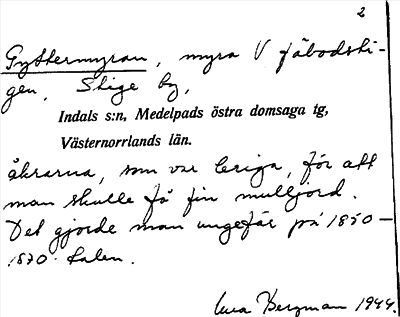 2
Gyttermyran, myra V fäbodsti-
gen, Stige by,
Indals s:n, Medelpads östra domsaga tg,
Västernorrlands län.
åkrarna, som var leriga, för att
man skulle få fin mulljord.
Det gjorde man ungefär på 1850-
1870-talen.
Bergman 1944.